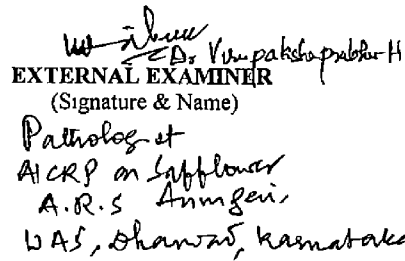 Dr Virupakshaprabhu H
EXTERNAL EXAMINER
(Signature & Name)
Pathologist
AICRP on Safflower
A.R.S Annigeri,
UAS, Dharwad, Karnataka